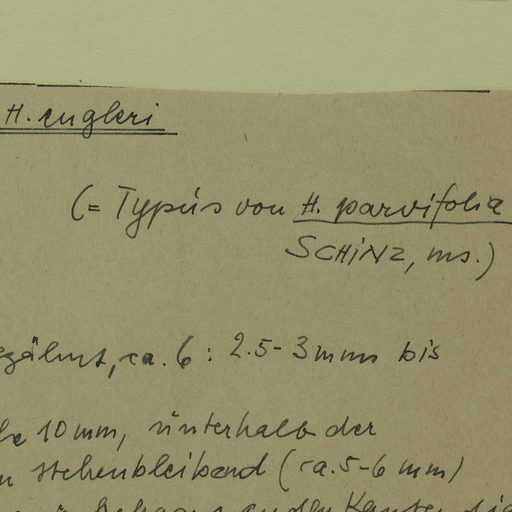 H. engleri
(= Typus von H. parvifolia
SCHINZ, ms.)
ca. 6 : 2.5-3 mm bis
10 mm, unterhalb der
stehenbleibend (ca. 5-6 mm)